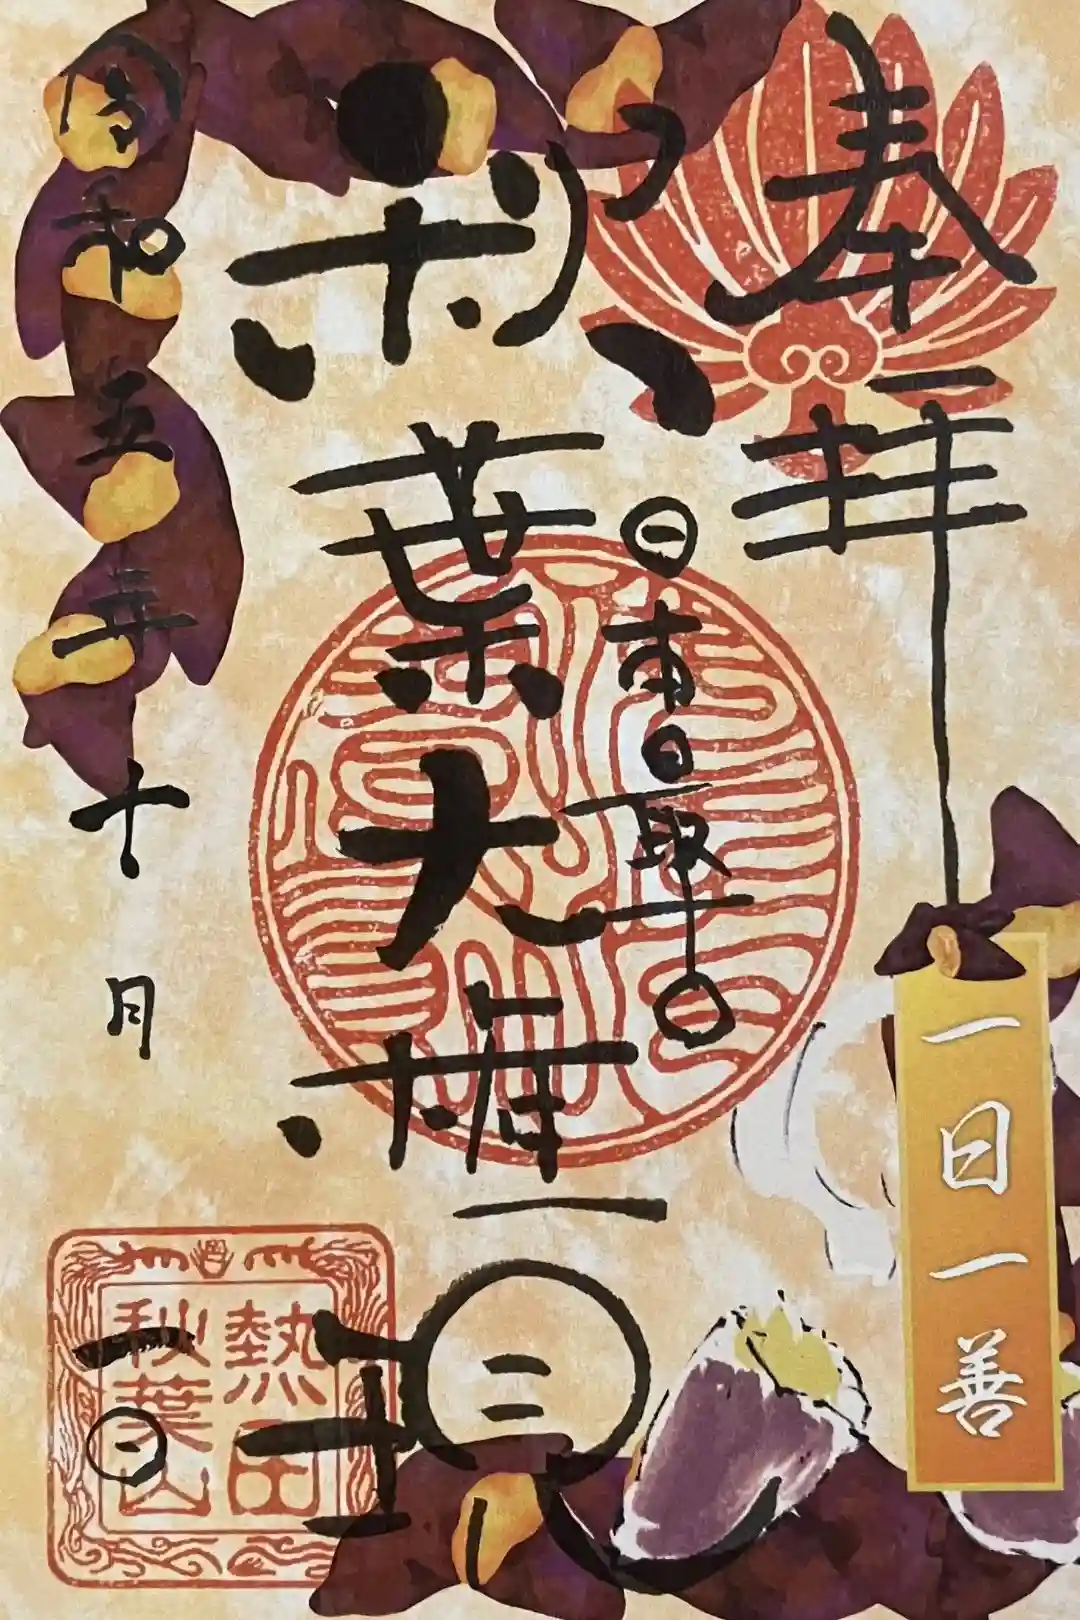 奉拝
一日一善
日本最
秋葉大権現
令和五年十月一日
熱田
秋葉山